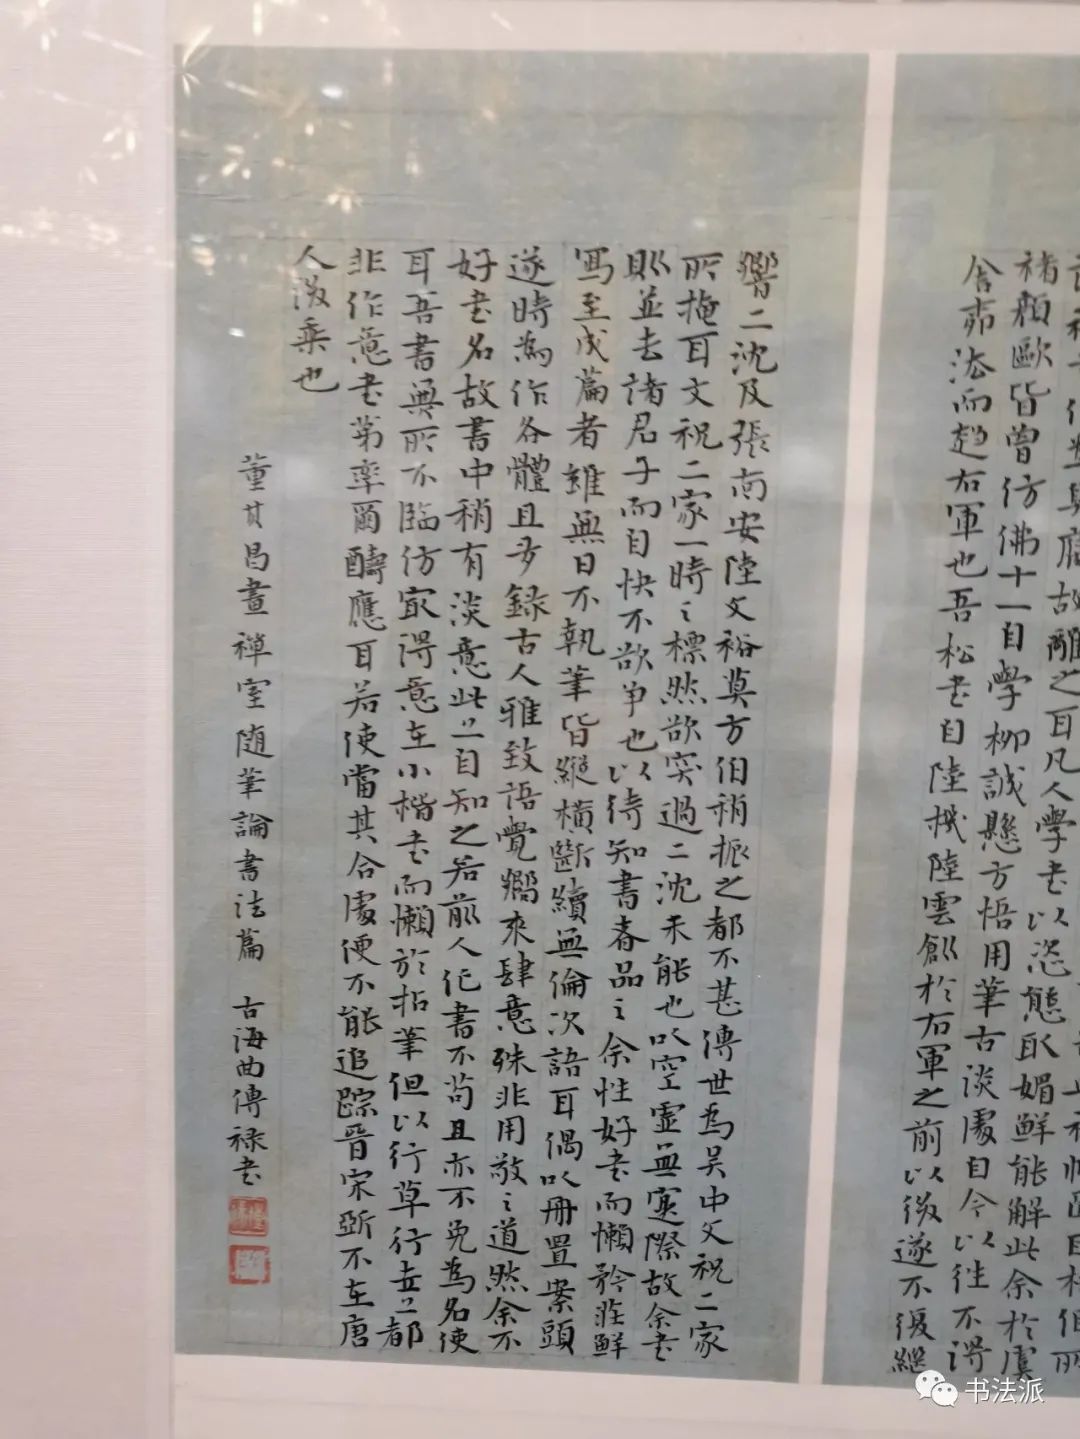 離之耳凡人學書以恣態取媚鮮能解此余於虞
褚顏歐皆曾仿佛十一自學柳誠懸方悟用筆古淡處自今以往不得
舍柳法而趨右軍也吾松書自陸機陸雲創於右軍之前以後遂不復繼
響二沈及張南安陸文裕莫方伯稍振之都不甚傳世為吳中文祝二家
所掩耳文祝二家一時之標然欲突過二沈未能也以空虛無實際故余書
則並去諸君子而自快不欲爭也以待知書者品之余性好書而懶矜莊鮮
寫至成篇者雖無日不執筆皆縱橫斷續無倫次語耳偶以冊置案頭
遂時為作各體且多錄古人雅致語覺嚮來肆意殊非用敬之道然余不
好書名故書中稍有淡意此亦自知之若前人作書不苟且亦不免為名使
耳吾書無所不臨仿最得意在小楷書而懶於拈筆但以行草行世亦都
非作意書第率爾酬應耳若使當其合處便不能追踪晉宋斷不在唐
人後乘也
董其昌畫禪室隨筆論書法篇 古海曲傳祿書
书法派